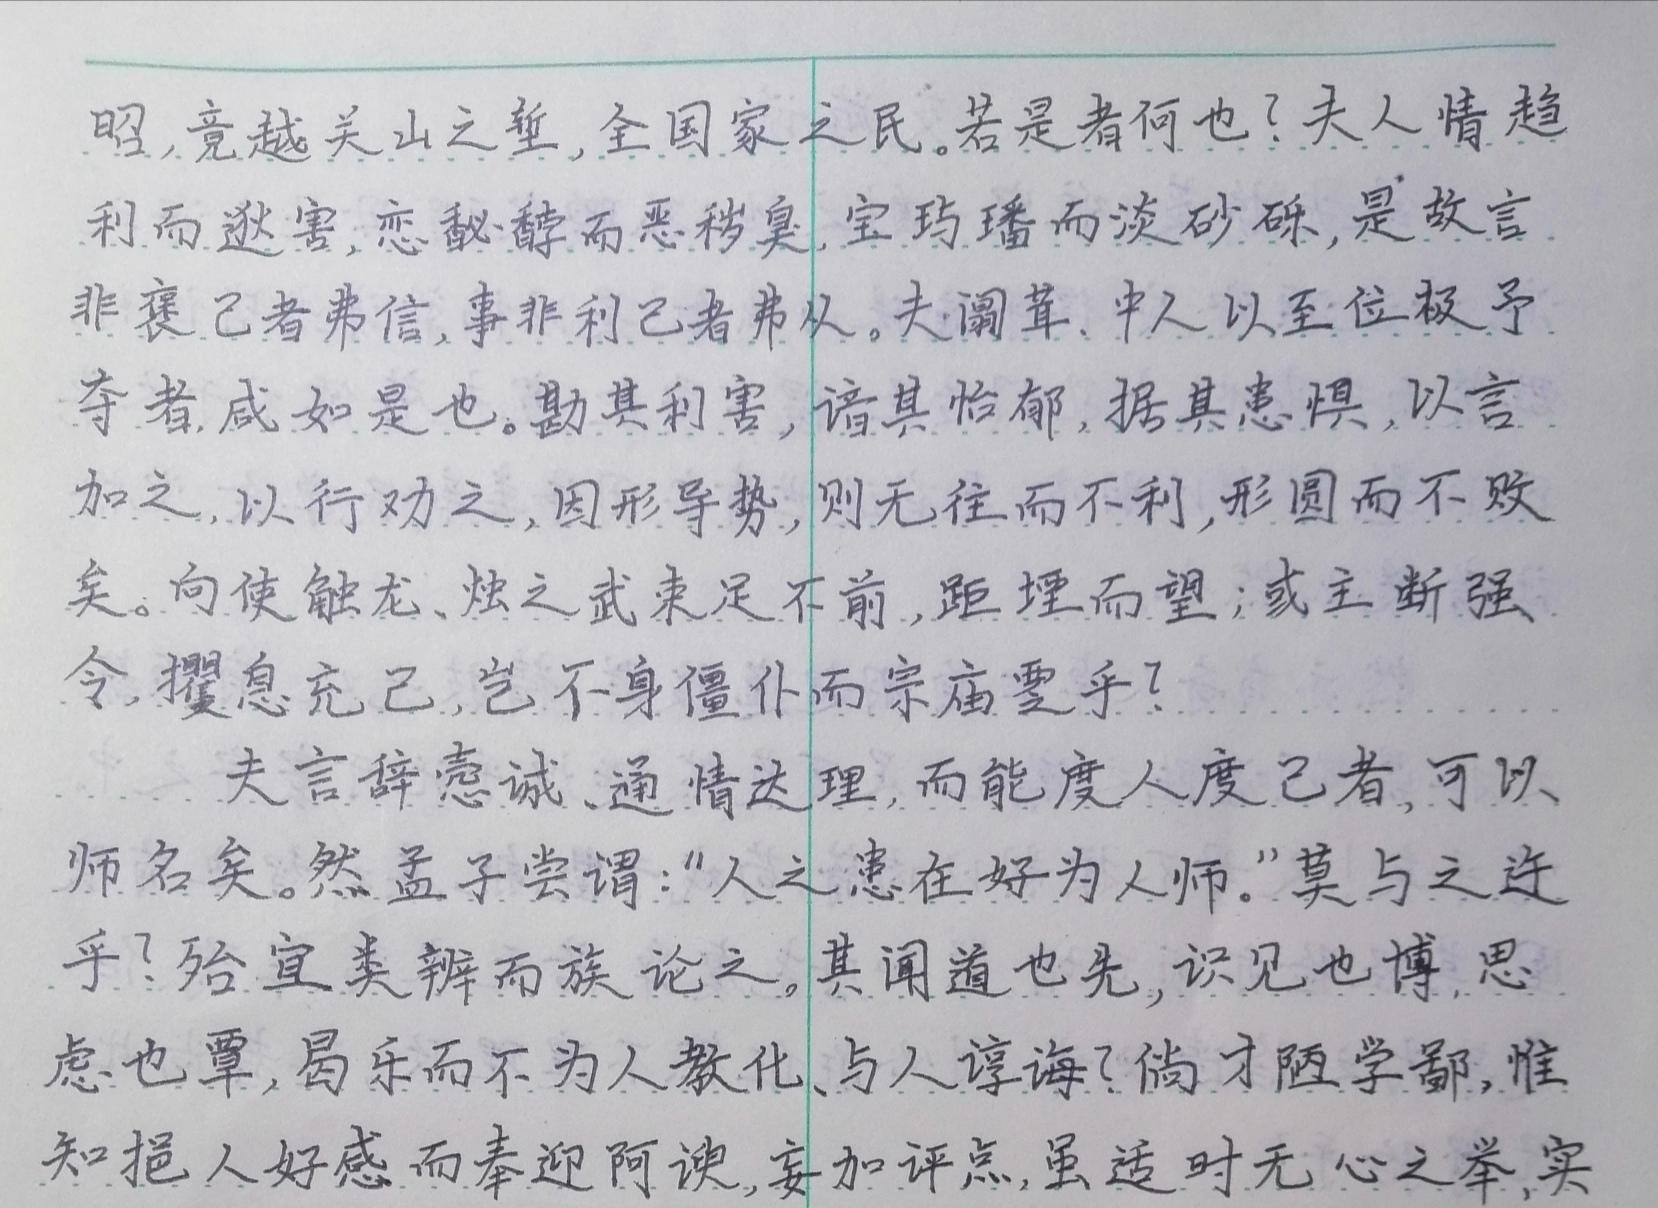 昭,竟越关山之堑,全国家之民。若是者何也?夫人情趋
利而逖害,恋馝馞而恶秽臭,宝玙璠而淡砂砾,是故言
非褒己者弗信,事非利己者弗从。夫阘茸、中人以至位极予
夺者,咸如是也。勘其利害,谙其怡郁,据其患惧,以言
加之,以行劝之,因形导势,则无往而不利,形圆而不败
矣。向使触龙、烛之武束足不前,距堙而望;或主断强
令,攫息充己,岂不身僵仆而宗庙覂乎?
夫言辞悫诚、通情达理,而能度人度己者,可以
师名矣。然孟子尝谓:“人之患在好为人师。”莫与之迕
乎?殆宜类辨而族论之。其闻道也先,识见也博,思
虑也覃,曷乐而不为人教化、与人谆诲?倘才陋学鄙,惟
知挹人好感而奉迎阿谀,妄加评点,虽适时无心之举,实